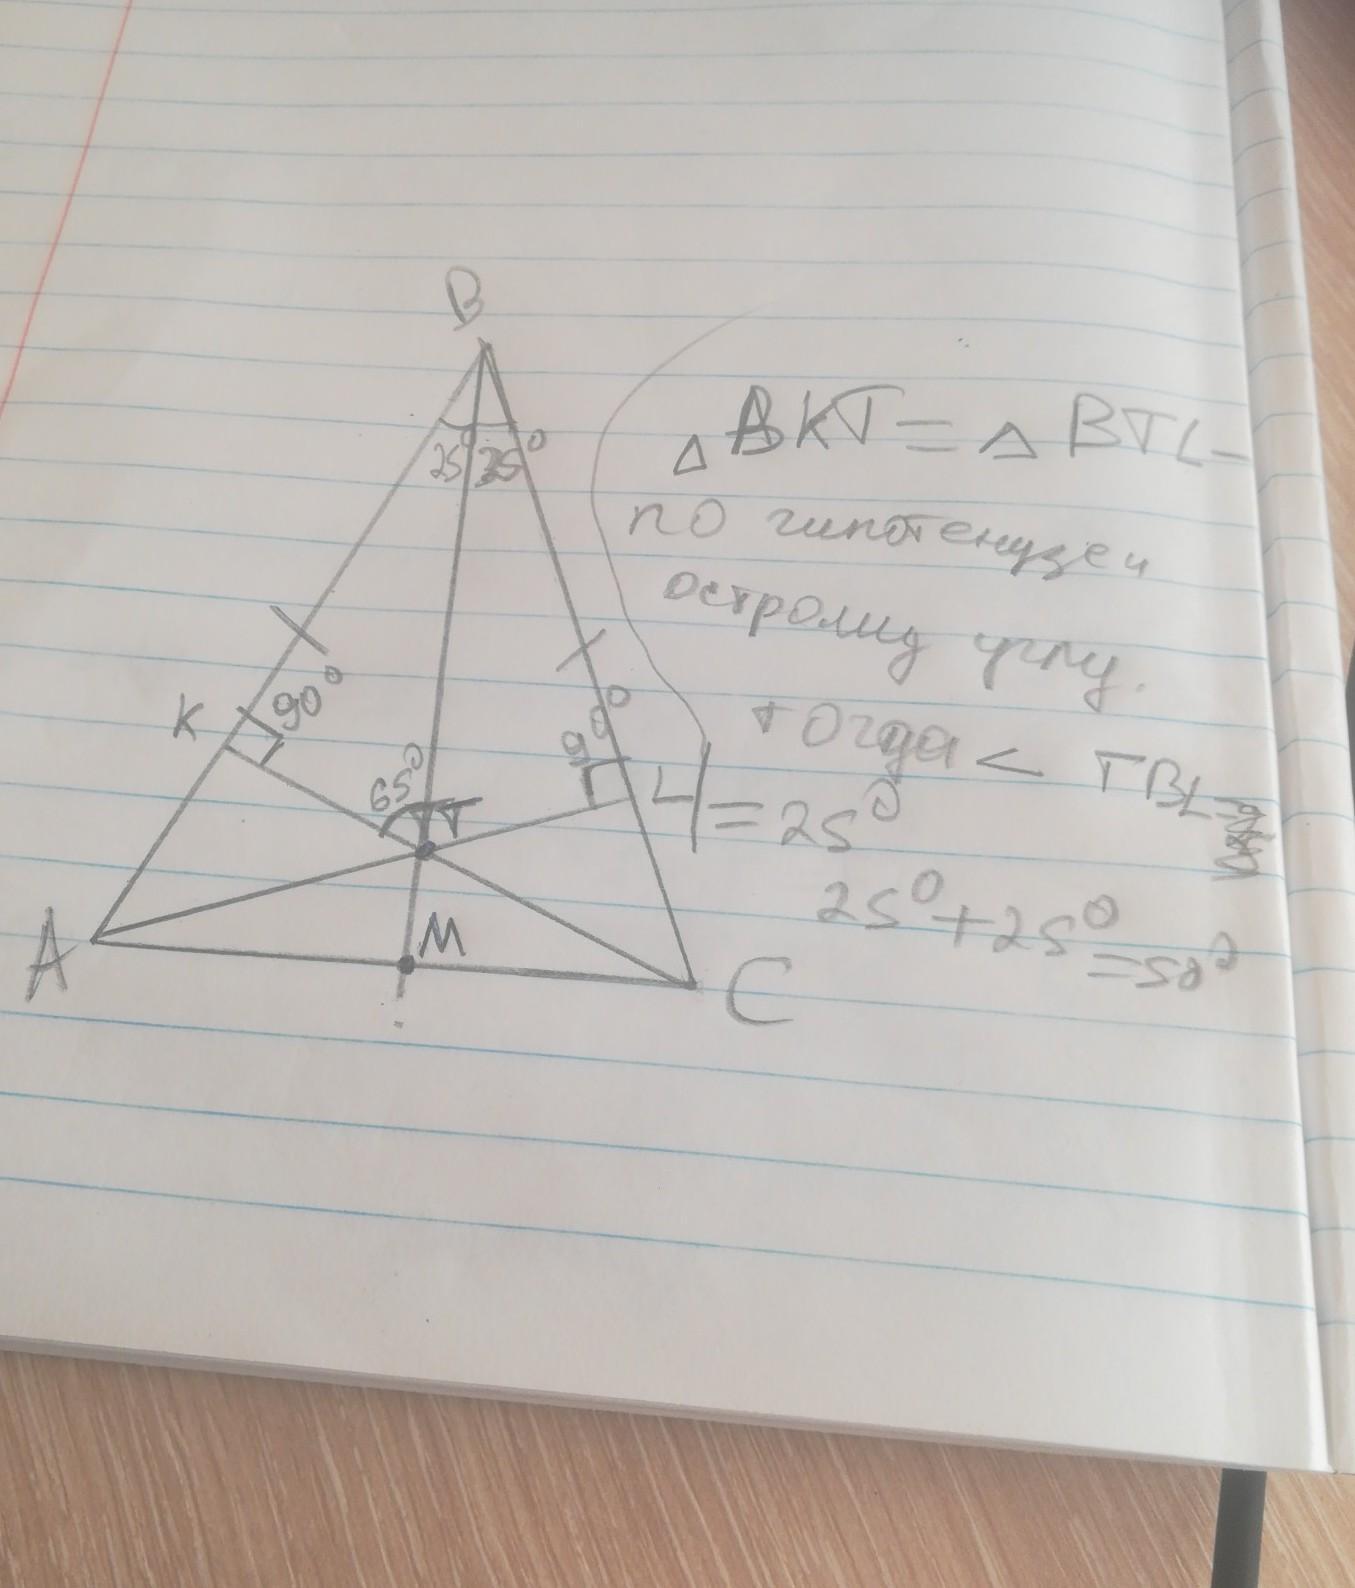 B
25° 25°
K
90°
90°
65°
T
L
A
M
C
△ BKT = △ BTL -
по гипотенузе и
острому углу.
тогда < TBL =
= 25°
25° + 25° = 50°